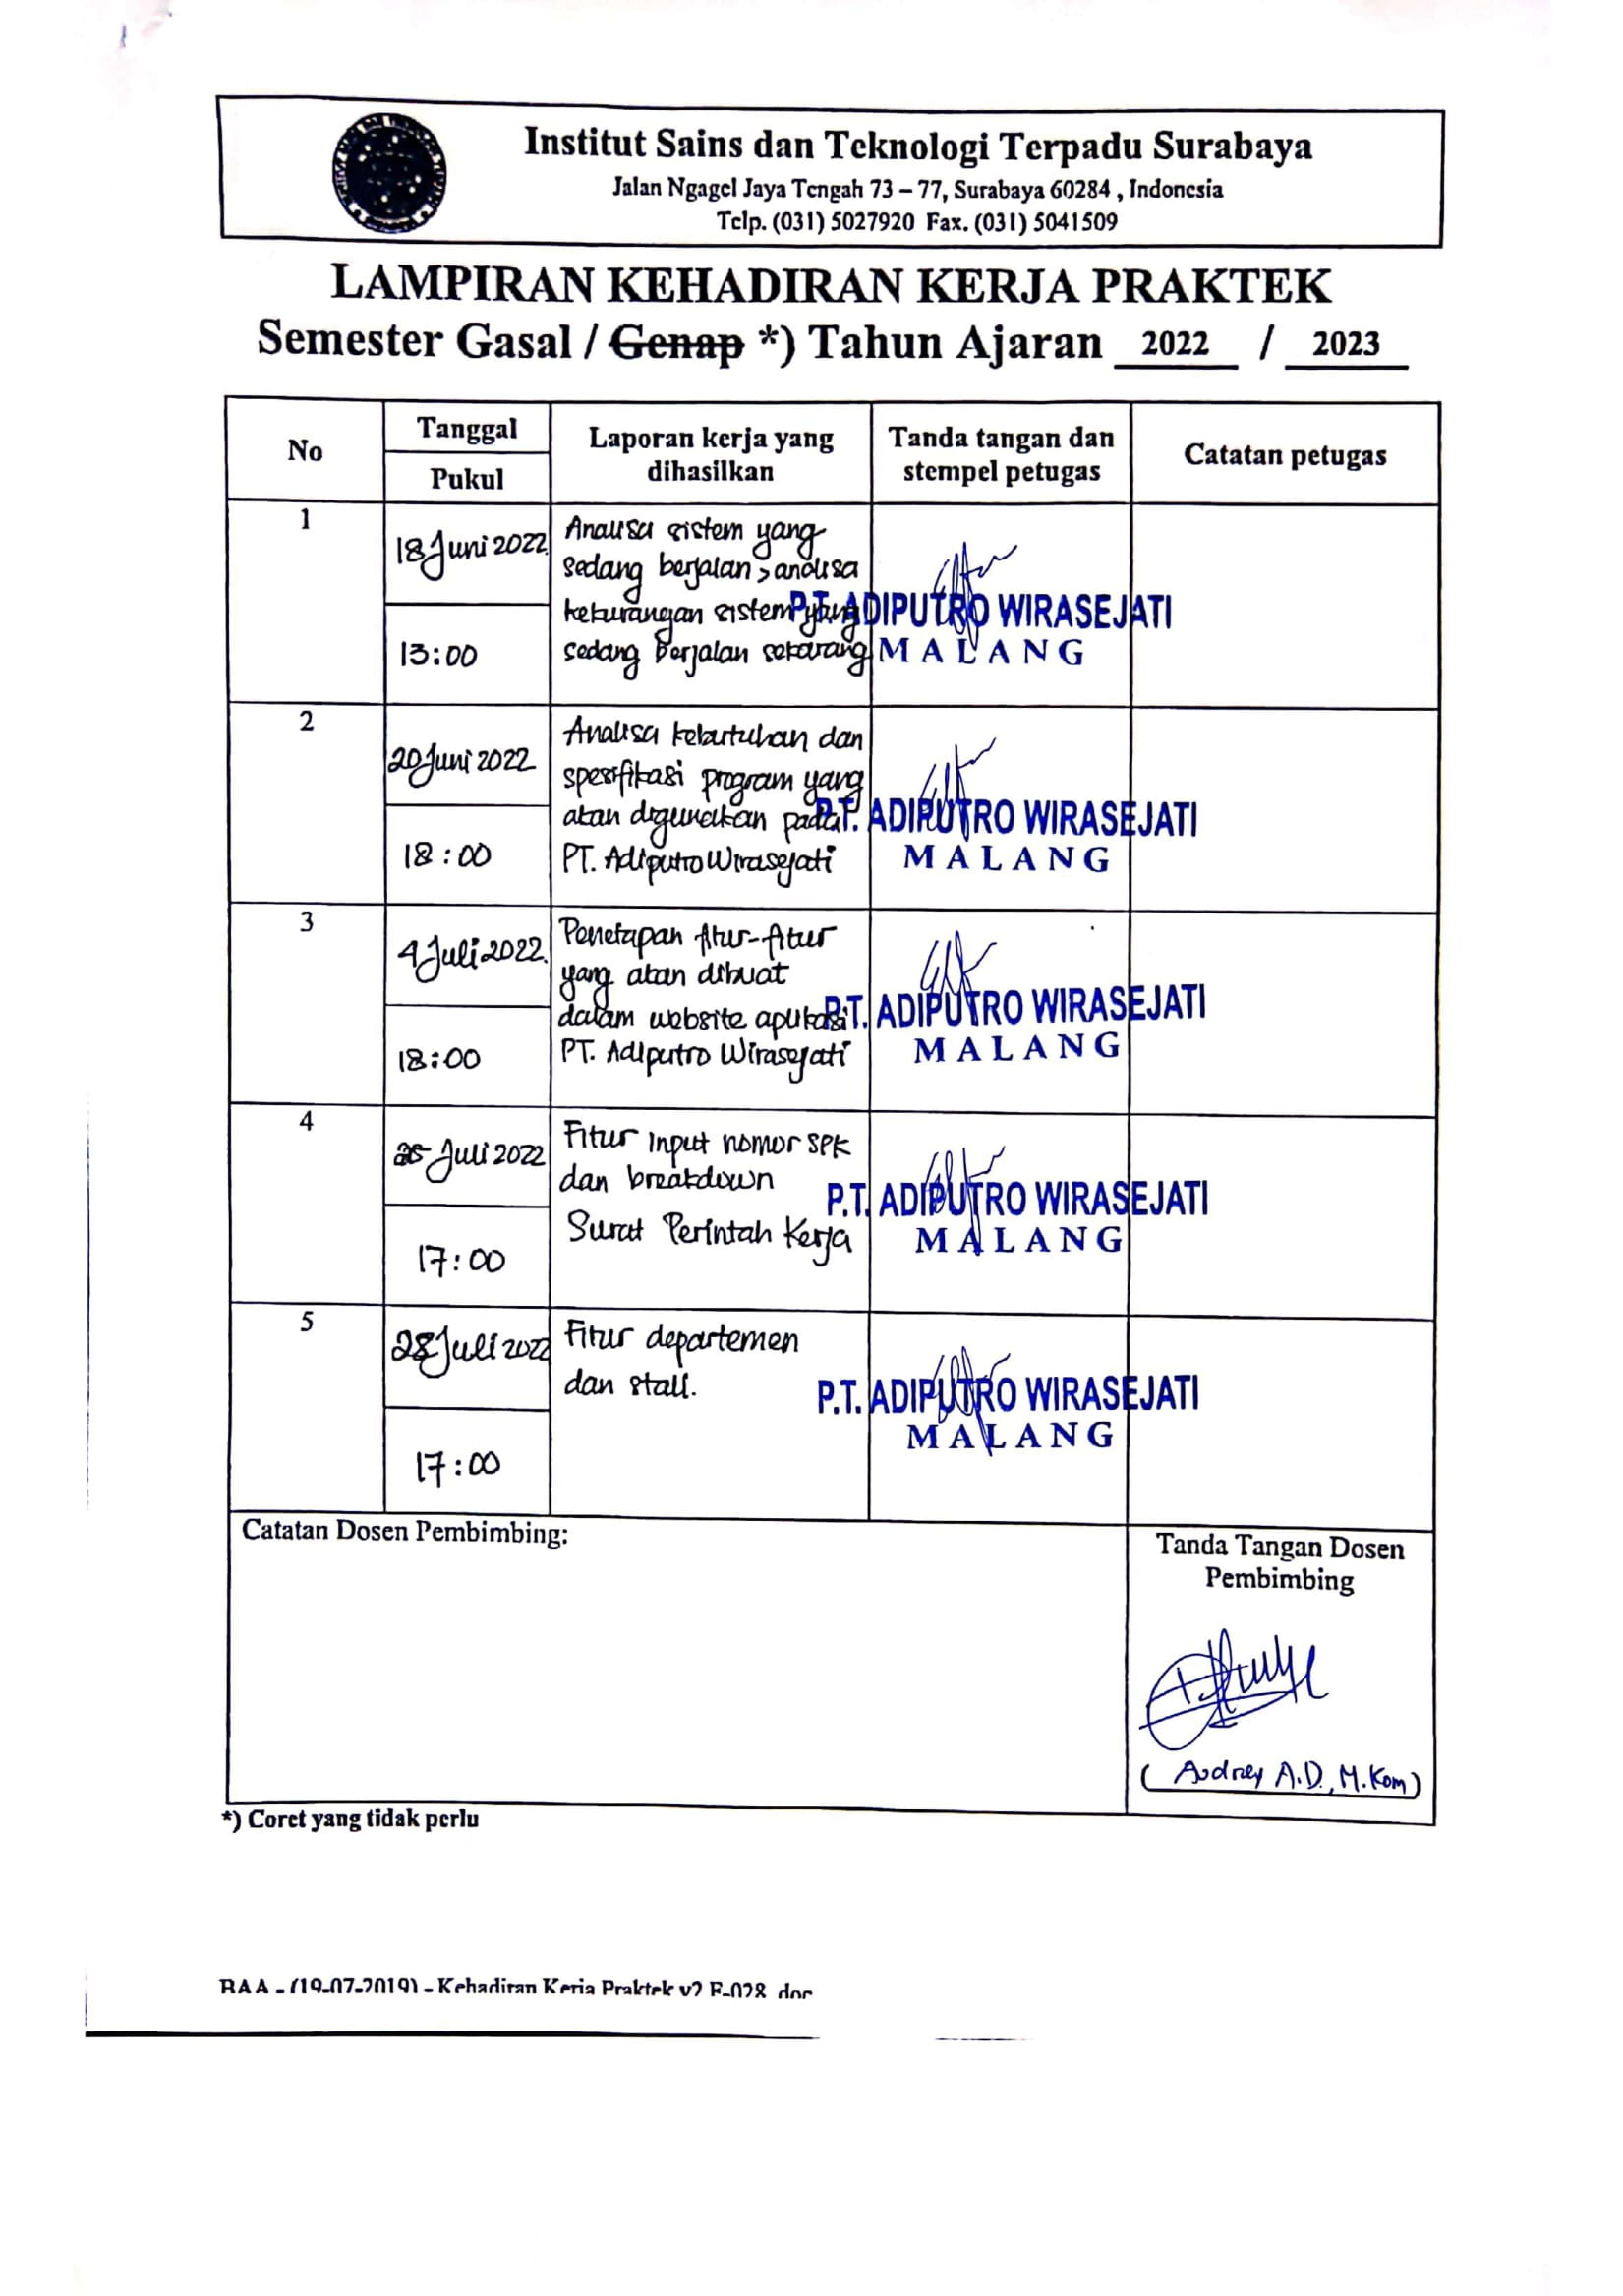 Institut Sains dan Teknologi Terpadu Surabaya
Jalan Ngagel Jaya Tengah 73 – 77, Surabaya 60284 , Indonesia
Telp. (031) 5027920 Fax. (031) 5041509
LAMPIRAN KEHADIRAN KERJA PRAKTEK
Semester Gasal / Genap *) Tahun Ajaran 2022 / 2023
No
Tanggal
Pukul
Laporan kerja yang
dihasilkan
Tanda tangan dan
stempel petugas
Catatan petugas
1
18 Juni 2022
13:00
Analisa sistem yang
sedang berjalan, analisa
kekurangan sistem yang
sedang berjalan sekarang
P.T. ADIPUTRO WIRASEJATI
MALANG
2
20 Juni 2022
18:00
Analisa kebutuhan dan
spesifikasi program yang
akan digunakan pada
PT. Adiputro Wirasejati
P.T. ADIPUTRO WIRASEJATI
MALANG
3
4 Juli 2022.
18:00
Penetapan fitur-fitur
yang akan dibuat
dalam website aplikasi
PT. Adiputro Wirasejati
P.T. ADIPUTRO WIRASEJATI
MALANG
4
25 Juli 2022
17:00
Fitur input nomor SPK
dan breakdown
Surat Perintah Kerja
P.T. ADIPUTRO WIRASEJATI
MALANG
5
28 Juli 2022
17:00
Fitur departemen
dan stall.
P.T. ADIPUTRO WIRASEJATI
MALANG
Catatan Dosen Pembimbing:
Tanda Tangan Dosen
Pembimbing
( Audrey A.D., M.Kom )
*) Coret yang tidak perlu
BAA - (19-07-2019) - Kehadiran Kerja Praktek v2 F-028 doc